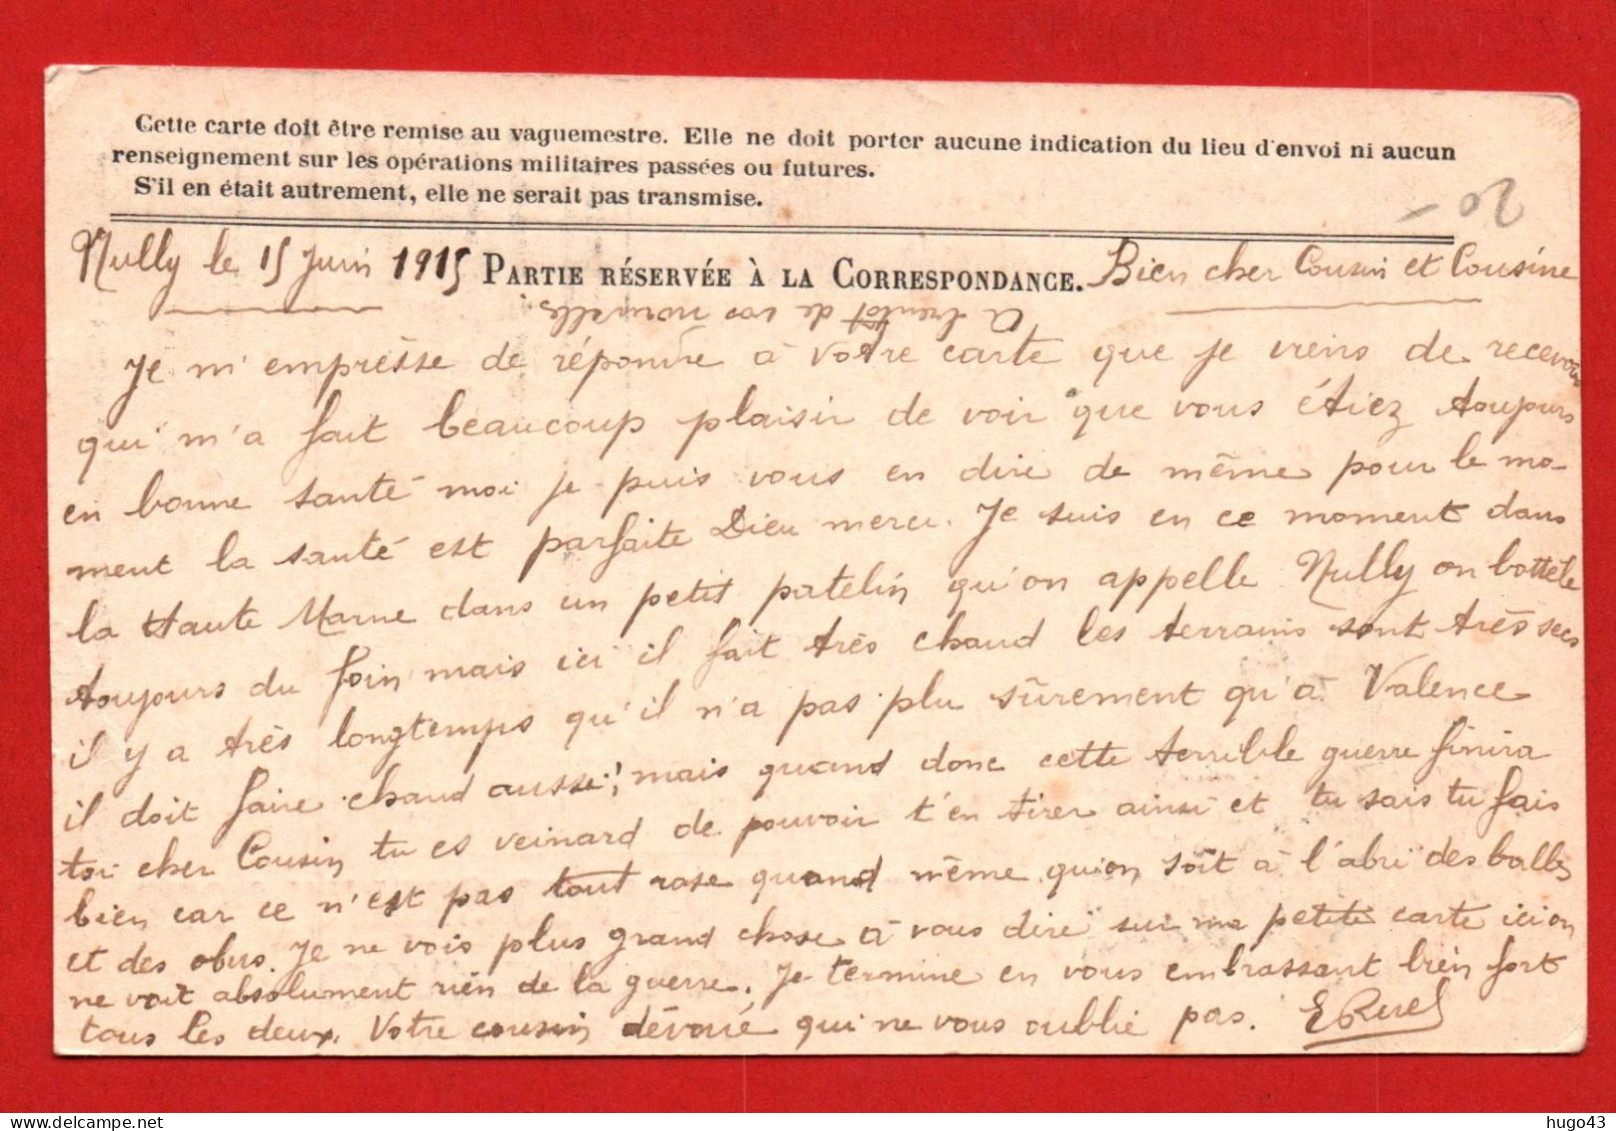 Cette carte doit être remise au vaguemestre. Elle ne doit porter aucune indication du lieu d'envoi ni aucun
renseignement sur les opérations militaires passées ou futures.
S'il en était autrement, elle ne serait pas transmise.
20 -
Nully le 15 Juin 1915 PARTIE RÉSERVÉE À LA CORRESPONDANCE. Bien cher Cousin et Cousine
A bientot de vos nouvelles.
Je m'empresse de répondre à votre carte que je viens de recevoir
qui m'a fait beaucoup plaisir de voir que vous étiez toujours
en bonne santé moi je puis vous en dire de même pour le mo-
ment la santé est parfaite Dieu merci. Je suis en ce moment dans
la Haute Marne dans un petit patelin qu'on appelle Nully on bottele
toujours du foin mais ici il fait très chaud les terrains sont très secs
il y a très longtemps qu'il n'a pas plu sûrement qu'à Valence
il doit faire chaud aussi; mais quand donc cette terrible guerre finira
toi cher Cousin tu es veinard de pouvoir t'en tirer ainsi et tu sais tu fais
bien car ce n'est pas tout rose quand même qu'on soit à l'abri des balles
et des obus. Je ne vois plus grand chose à vous dire sur ma petite carte ici on
ne voit absolument rien de la guerre. Je termine en vous embrassant bien fort
tous les deux. Votre cousin dévoué qui ne vous oublie pas. E Ruel
hugo43